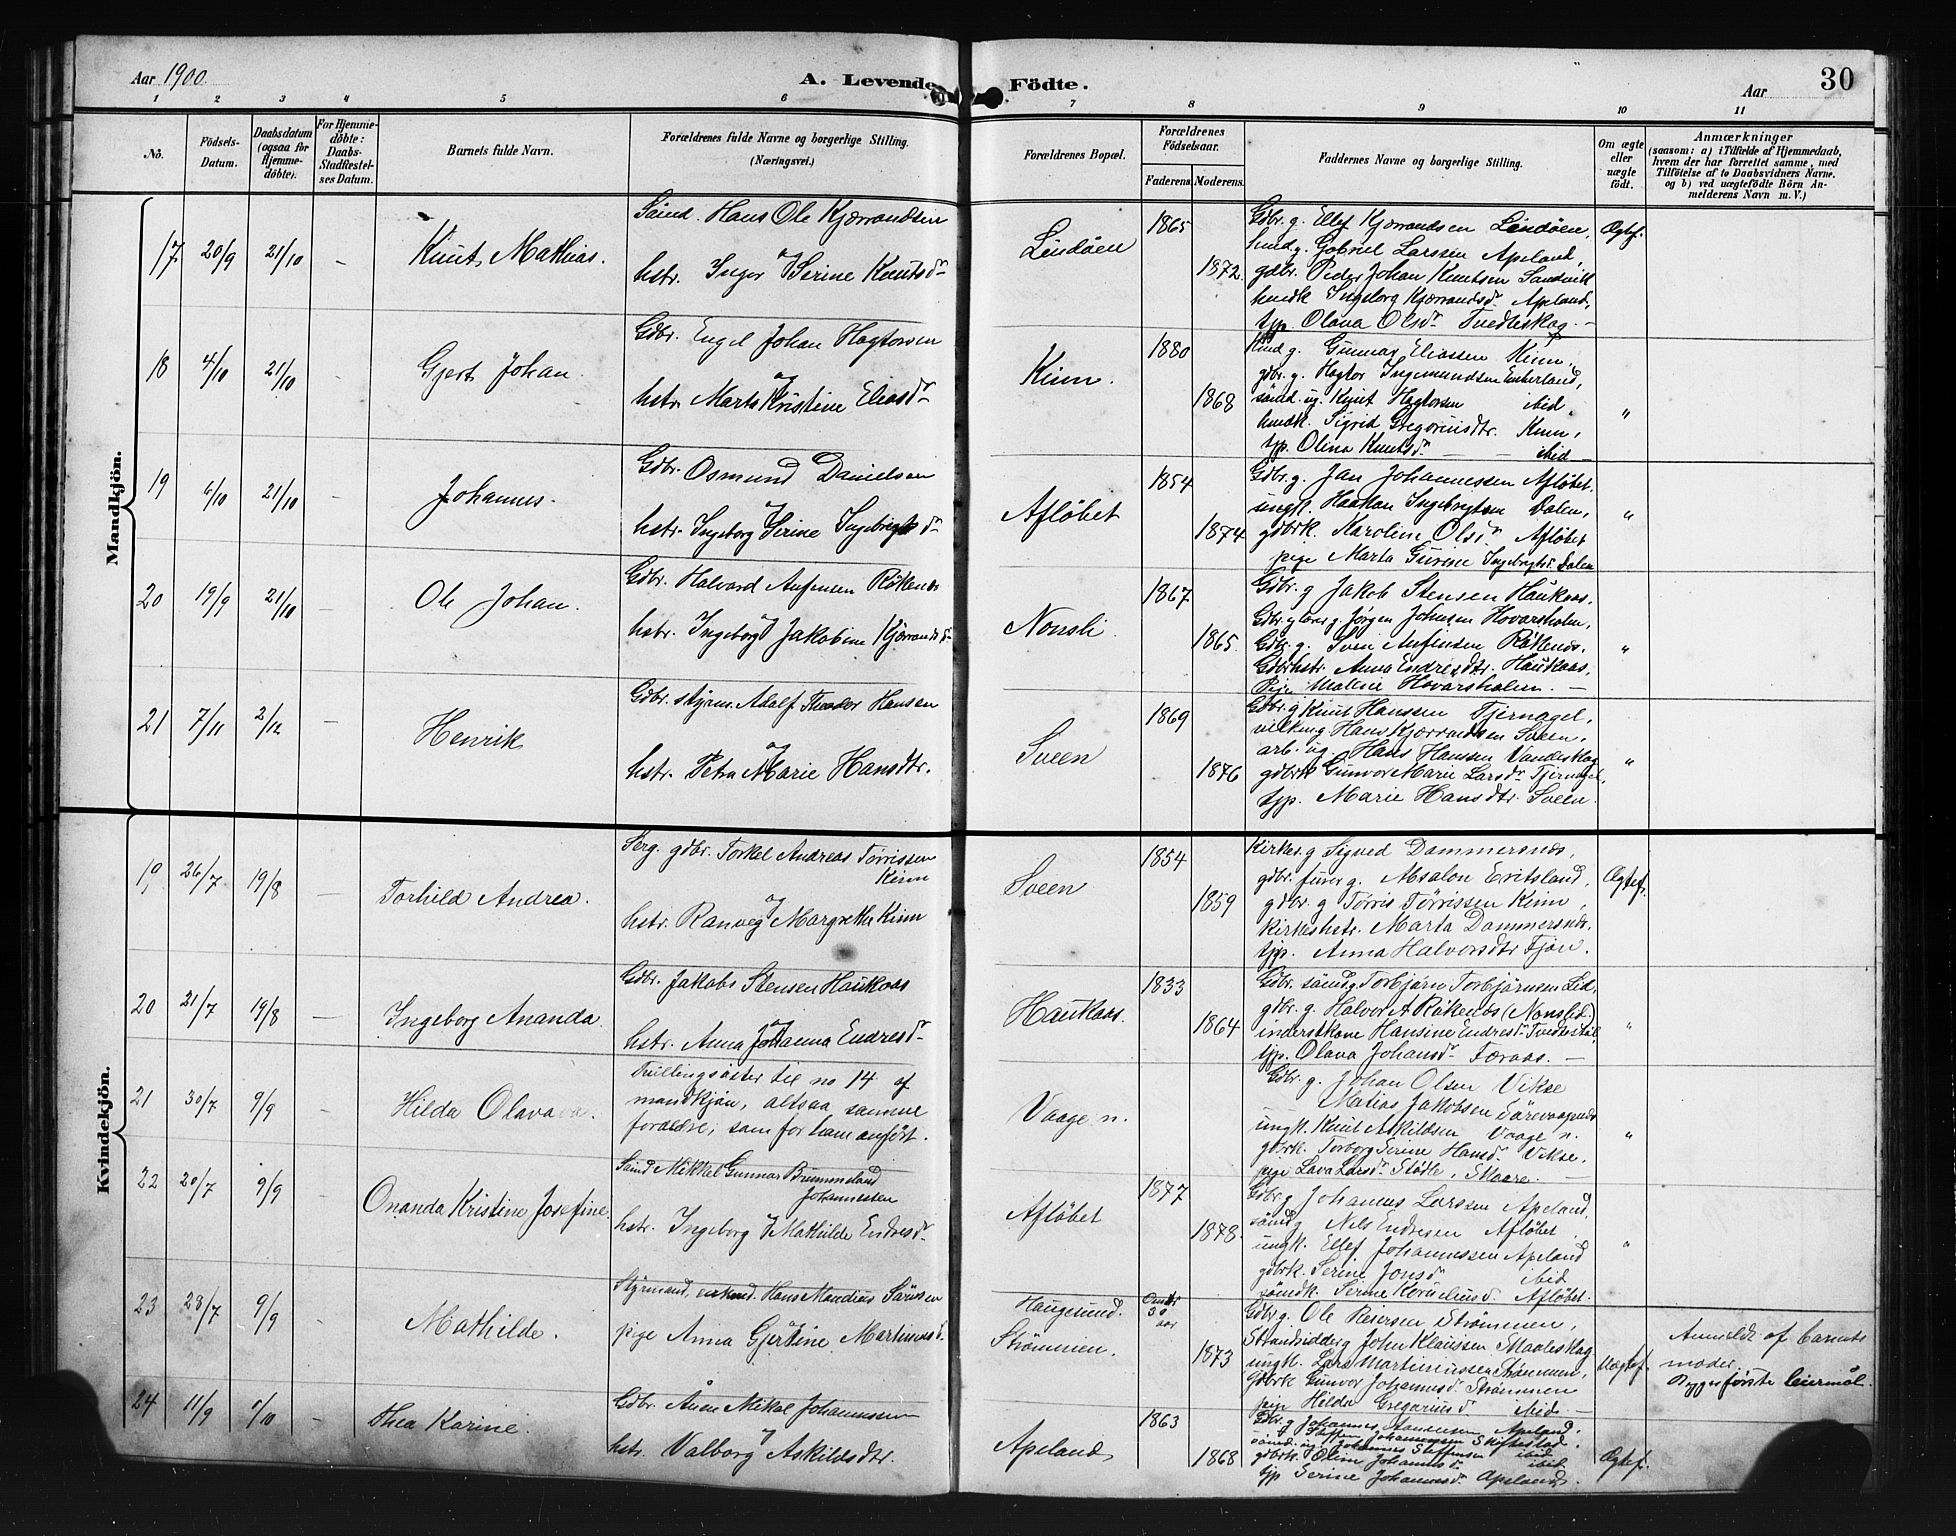 Aar 1900. A. Levende Födte. Aar 30
1 2 3 4 5 6 7 8 9 10 11
No. Födsels-Datum. Daabsdatum (ogsaa for Hjemme-döbte). For Hjemme-döbte: Daabs-Stadfæstel-ses Datum. Barnets fulde Navn. Forældrenes fulde Navne og borgerlige Stilling. (Næringsvei.) Forældrenes Bopæl. Forældrenes Födselsaar. Faderens. Moderens. Faddernes Navne og borgerlige Stilling. Om ægte eller uægte födt. Anmærkninger (saasom: a) i Tilfælde af Hjemmedaab, hvem der har forrettet samme, med Tilföielse af to Daabsvidners Navne. og b) ved uægtefödte Börn An-melderens Navn m. V.)
Mandkjön.
17 20/9 21/10 – Knut Mathias.
Hans Ole Kjørrandsen
og
hstr. Inger Serine Knutsdr
Lindøen 1865 1872.
Gdbr. g. Ellef Kjørrandsen Lindøen,
g. Gabriel Larssen Apeland,
gdbr. Peder Johan Knutsen Sandvik
Ingeborg Kjørrandsdr Apeland,
tjp. Olava Olsdr –
Ægtef.
18 4/10 21/10 – Gjert Johan.
Gdbr. Engel Johan Hagtorsen
og
hstr. Marta Kristine Eliasdr
Kinn. 1880 1868
g. Gunnar Eliassen Kinn.
gdbr. g. Hagtor Ingemundsen
ug. Knut Hagtorsen ibid.
Sigrid Gregoriusdtr. Kinn,
tjp. Olina Knutsdr – – ibid –
"
19 6/10 21/10 – Johannes.
Gdbr. Osmund Danielsen
og
hstr. Ingeborg Serine Ingebrigtsdr
Afløbet 1854 1874
Gdbr. g. Jan Johannessen Afløbet.
ungk. Haakon Ingebrigtsen Dalen,
gdbrk. Karoline Olsdr Afløbet
pige Marta Gurine Ingebrigtsdr Dalen
"
20 19/9 21/10 – Ole Johan.
Gdbr. Halvard Anfinsen Røkenes
og
hstr. Ingeborg Jakobine Kjørrandsdr
Nonsli. 1867 1865.
Gdbr. g Jakob Stensen Haukaas,
Gdbr. g. Jørgen Johnsen Hovarsholm,
Gdbr. g. Sven Anfinsen Røkenes.
Gdbrhstr. Anna Endresdtr. Haukaas,
Pige Malene Hovarsholm. –
"
21 7/11 2/12 – Henrik
Gdbr. styrm. Adolf Theodor Hansen
og
hstr. Petra Marie Hansdtr.
Sveen 1869 1876
Gdbr. g Knut Hanssen Tjernagel,
Hans Kjørrandsen Sveen,
arb. ug. Hans Hanssen Vandeskog
gdbrk Gunvor Marie Larsdr Tjernagel,
tjp. Marie Hansdtr. Sveen.
"
Kvindekjön.
19 26/7 19/8 – Torhild Andrea.
Serg. gdbr. Torkel Andreas Tørrissen
Kinn
og
hstr. Ranveg Margrethe Kinn
Sveen 1854 1859
Kirkes. g Sigved Dammersnæs,
gdbr. g. Absalon Eritsland,
gdbr. g Tørris Tørrissen Kinn,
Kirkeshstr. Marta Dammersnæs.
tjp. Anna Halvorsdtr Fjøn.
Ægtef.
20 21/7 19/8 – Ingeborg Ananda
Gdbr. Jakobs Stensen Haukaas
og
hstr. Anna Johanna Endresdr
Haukaas. 1833 1864
Gdbr. g Torbjørn Torbjørnsen Lid,
gdbr. g. Halvor A Røkenes (Nonslid.)
Hansine Endresdr
tjp. Olava Johansdr Færaas. –
"
21 30/7 9/9 – Hilda Olava.
Tvillingsøster til no 14 af
mandkjøn, altsaa samme
forældre, som for ham anført.
Vaage n.
Gdbr. g. Johan Olsen Vikse
Matias Jakobsen
ungk. Knut Askildsen Vaage n.
gdbrk. Torborg Serine Hansdr Vikse,
pige Lava Larsdr Stødle, Skaare. –
"
22 20/7 9/9 – Onanda Kristine Josefine
Mikkel Gunnar Brummeland
Johannessen
og
hstr. Ingeborg Mathilde Endresdr
Afløbet 1877 1878.
Gdbr. g Johannes Larssen Apeland,
g Nils Endresen Afløbet
ungk. Ellef Johannessen Apeland
gdbrk. Serine Jonsdr ibid
Serine Korneliusdr Afløbet.
"
23 28/7 9/9 – Mathilde.
Styrmand, Hans Mandius Sørensen
og
pige Anna Gjertine Martinusdr
Haugesund. Strømmen. Omtr 30 aar 1873
Gdbr. g. Ole Reiersen Strømmen,
Strandsidder g John Klaussen
ungk. Lars Martinussen Strømmen,
Gdbrk Gunvor Johannesdr Strømmen
pige Hilda Gregariusdr ibid. –
Uægtef.
Anmeldt af barnets
moder.
Begges første leiermål.
24 11/9 7/10 – Thea Karine.
Gdbr. Mikal Johannessen
og
hstr. Valborg Askildsdtr.
Apeland 1863 1868
Gdbr. g Johannes Apeland,
Johannes Steffensen ibid
gdbrk. Johannesdr ibid
tjp Serine Johannesdr Apeland.
Ægtef.